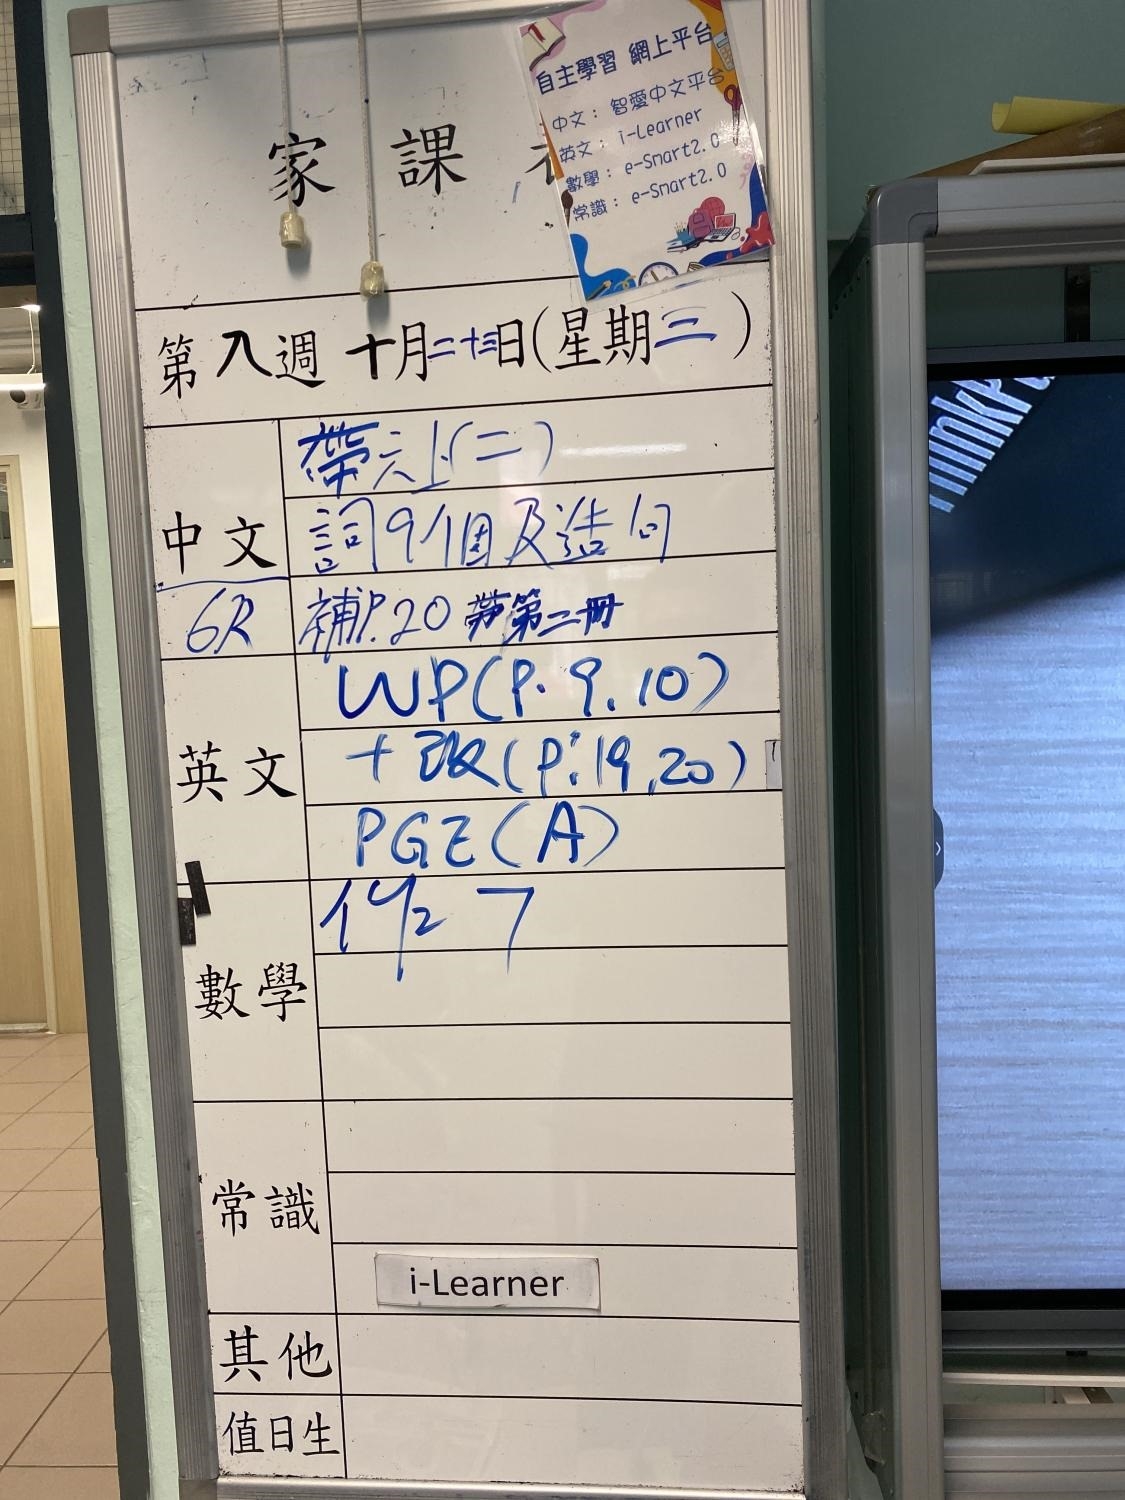 家課
自主學習 網上平台
中文： 智愛中文平台
英文： i-Learner
數學： e-Smart2.0
常識： e-Smart2.0
第八週 十月二十三日(星期三)
中文
帶六上(二)
詞9個及造句
6R
補P.20 帶第二冊
英文
WP(P.9.10)
+改(P:19,20)
PGE(A)
數學
7
常識
i-Learner
其他
值日生